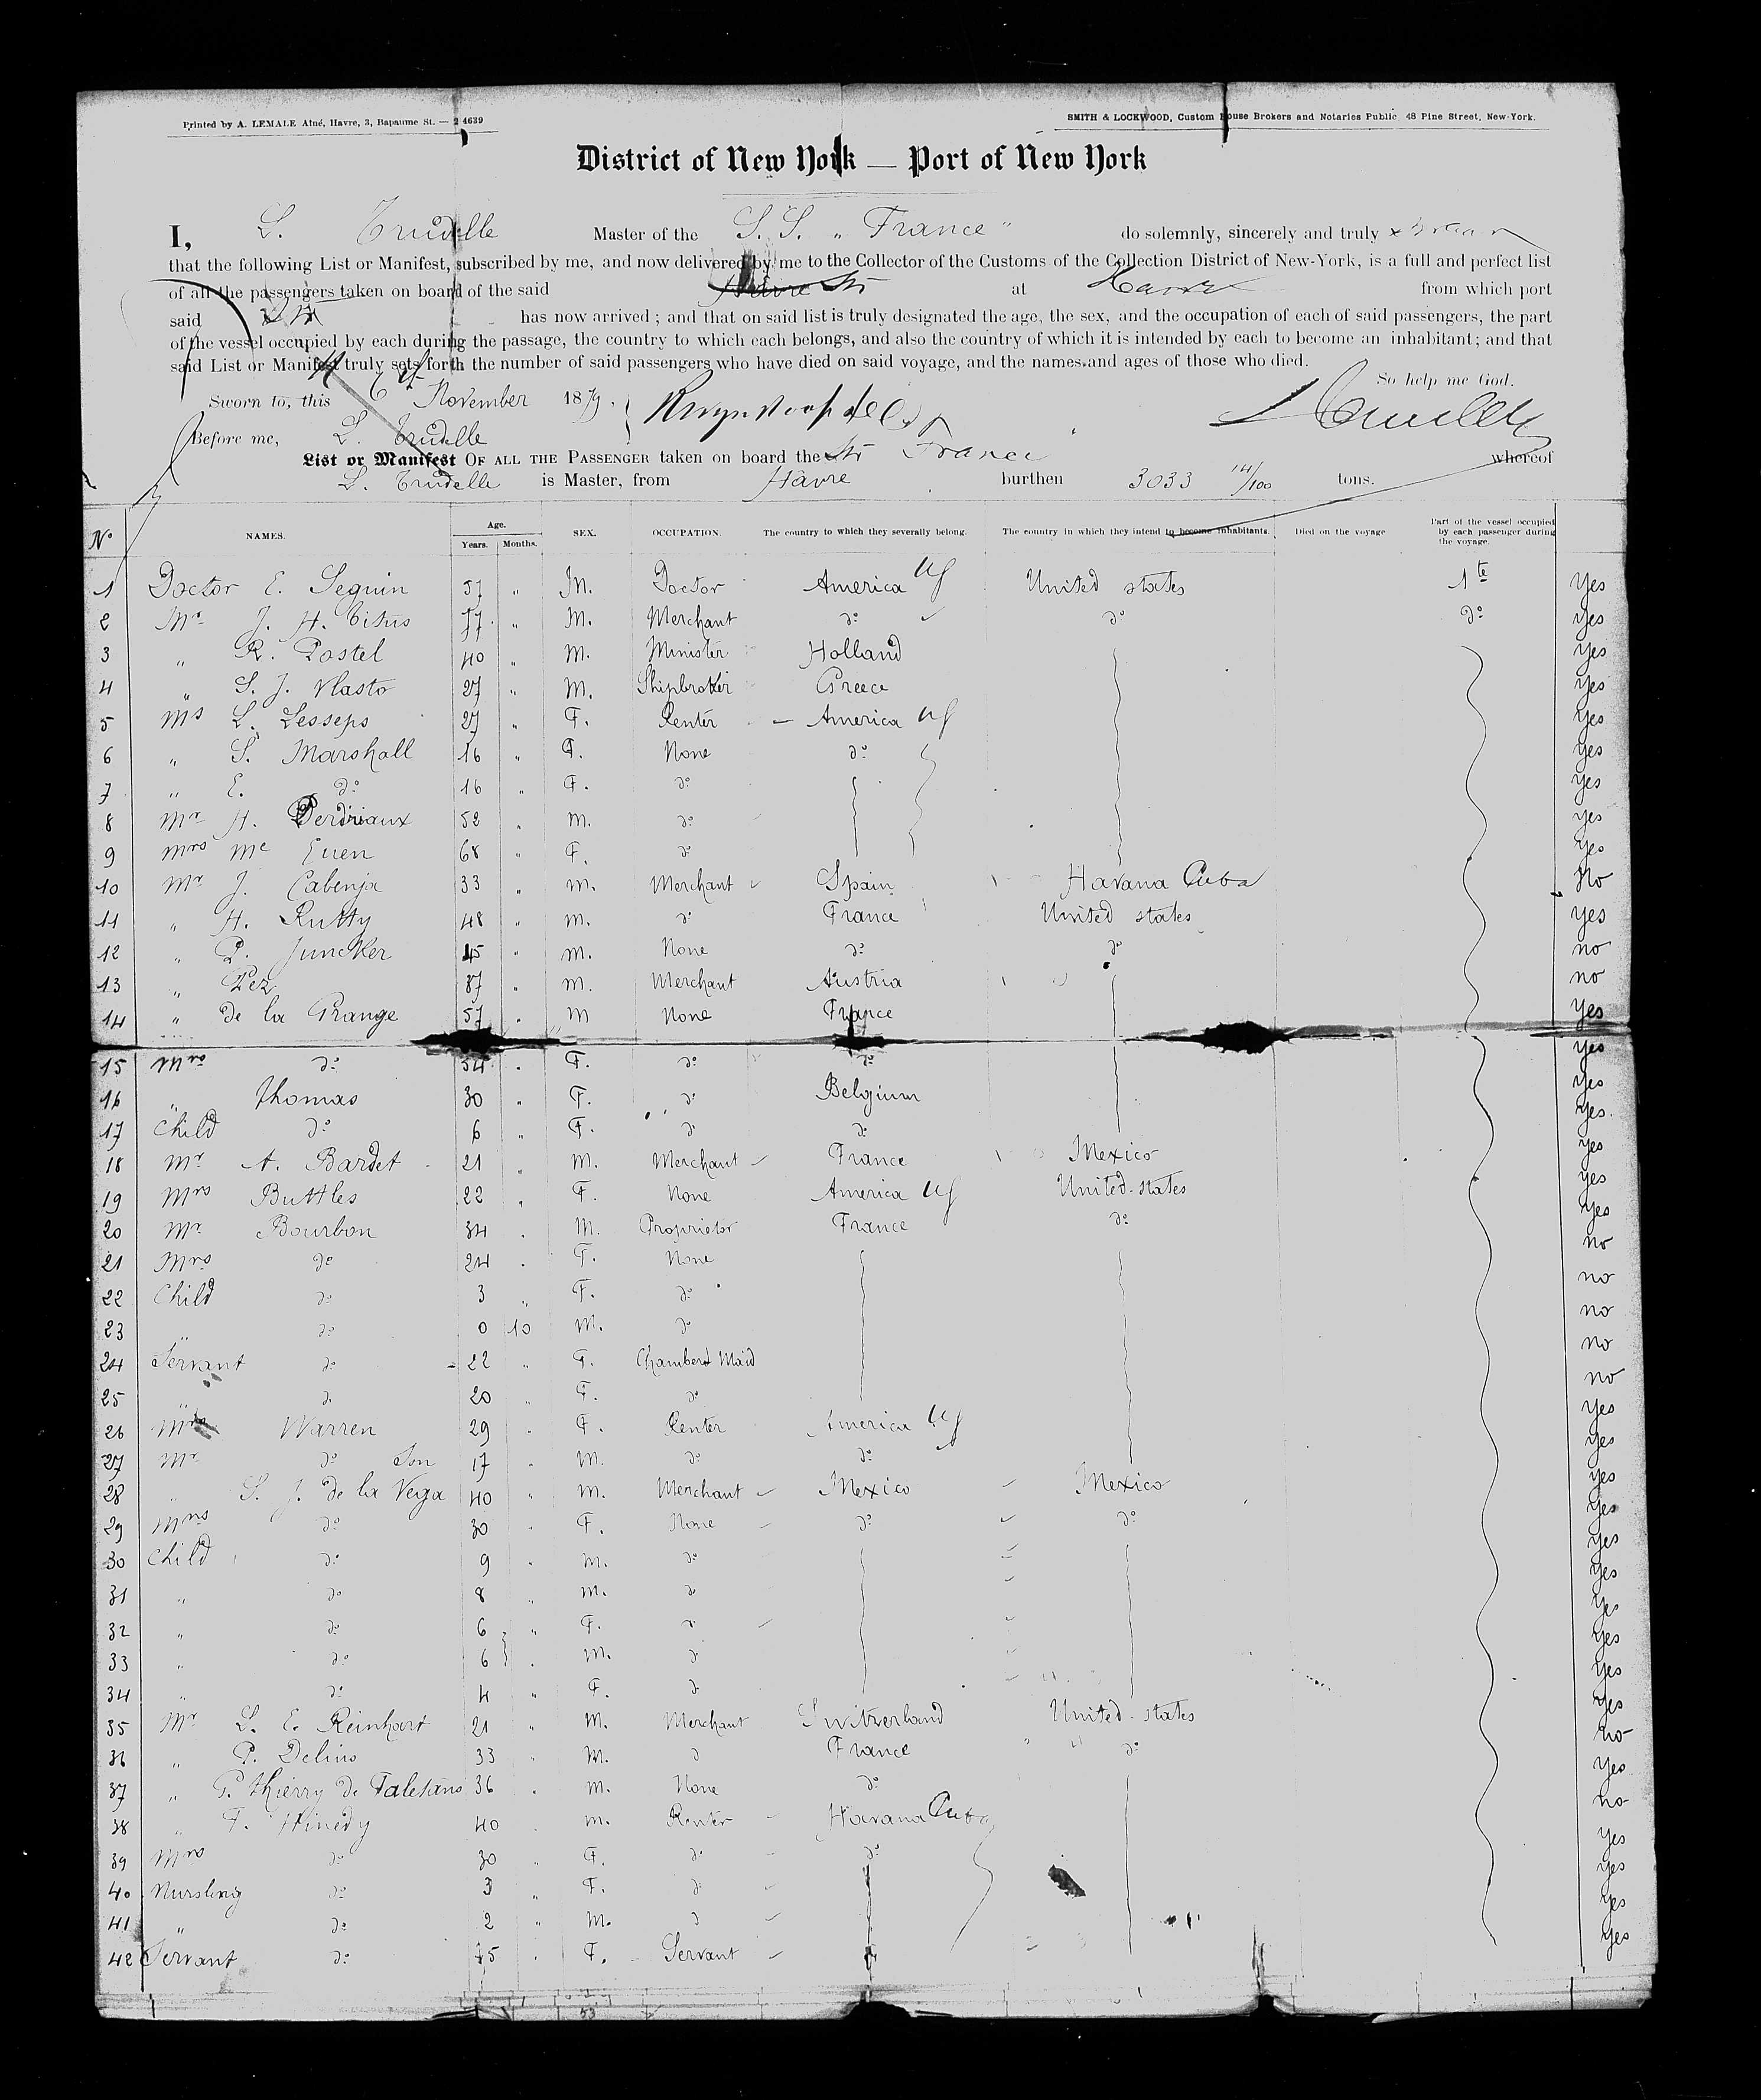 Printed by A. LEMALE Aîné, Havre, 3, Bapaume St. — 2 4639
SMITH & LOCKWOOD, Custom House Brokers and Notaries Public 48 Pine Street, New-York.
District of New York — Port of New York
I, L. Trudelle Master of the S.S. „ France " do solemnly, sincerely and truly
that the following List or Manifest, subscribed by me, and now delivered by me to the Collector of the Customs of the Collection District of New-York, is a full and perfect list
of all the passengers taken on board of the said Str at Havre from which port
said Str has now arrived ; and that on said list is truly designated the age, the sex, and the occupation of each of said passengers, the part
of the vessel occupied by each during the passage, the country to which each belongs, and also the country of which it is intended by each to become an inhabitant; and that
said List or Manifest truly sets forth the number of said passengers who have died on said voyage, and the names and ages of those who died.
So help me God.
Sworn to, this 6 November 1879.
Before me, L. Trudelle
List or Manifest OF ALL THE PASSENGER taken on board the Str France whereof
L. Trudelle is Master, from Havre burthen 3033 14/100 tons.
Nº NAMES. Age. Years. Months. SEX. OCCUPATION. The country to which they severally belong. The country in which they intend to become inhabitants. Died on the voyage Part of the vessel occupied by each passenger during the voyage.
1 Doctor E. Seguin 57 „ M. Doctor America United states 1te Yes
2 Mr J. H. Titus „ M. Merchant do do do yes
3 „ R. Postel 40 „ M. Minister Holland yes
4 „ S. J. Vlasto 27 „ M. Shipbroker Greece yes
5 Ms L. Lesseps 27 „ F. Renter — America yes
6 „ S. Marshall 16 „ F. None do yes
7 „ E. do 16 „ F. do yes
8 Mr H. Perdriaux 52 „ M. do yes
9 Mrs Mc Euen 68 „ F. do yes
10 Mr J. Cabenja 33 „ M. Merchant Spain Havana Cuba No
11 „ H. Rutty 48 „ M. do France United states yes
12 „ P. Juncker 45 „ M. None do do no
13 „ Pez 37 „ M. Merchant Austria no
14 „ de la Grange 57 „ M None France Yes
15 Mrs do 54 „ F. do do yes
16 „ Thomas 30 „ F. do Belgium yes
17 Child do 6 „ F. do do Yes.
18 Mr A. Bardet 21 „ M. Merchant France Mexico yes
19 Mrs Buttles 22 „ F. None America United-states yes
20 Mr Bourbon 34 „ M. Proprietor France do yes
21 Mrs do 24 „ F. None no
22 Child do 3 „ F. do no
23 „ do 0 10 M. do no
24 Servant do 22 „ F. Chamberd Maid no
25 „ do 20 „ F. do no
26 Mrs Warren 29 „ F. Renter America Yes
27 Mr do Son 17 „ M. do do yes
28 „ S. J. de la Vega 40 „ M. Merchant Mexico Mexico yes
29 Mrs do 30 „ F. None do do yes
30 Child do 9 „ M. do yes
31 „ do 8 „ M. do yes
32 „ do 6 „ F. do yes
33 „ do 6 „ M. do yes
34 „ do 4 „ F. do yes
35 Mr L. E. Reinhart 21 „ M. Merchant Switzerland United-states yes
36 „ P. Delius 33 „ M. do France do no
37 „ P. Thierry de Faletans 36 „ M. None do Yes
38 „ F. Hinedy 40 „ M. Renter Havana Cuba no
39 Mrs do 30 „ F. do do yes
40 Nursling do 3 „ F. do yes
41 „ do 2 „ M. do yes
42 Servant do „ F. Servant Yes
53